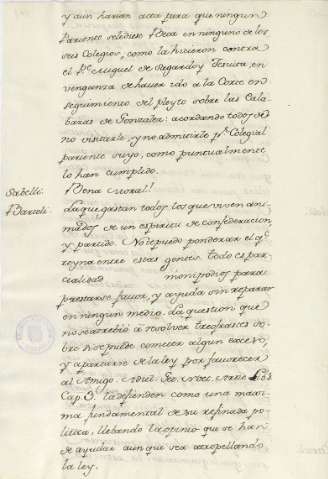 y aun harian acta para que ningun
Pariente se le diese Beca en ninguno de los
seis Colegios, como la hicieron contra
el Pe. Miguel de Sagardoy Jesuita, en
venganza de haver ido a la Corte en
seguimiento del pleyto sobre las Cala-
bazas de Gonzalez: acordando todos de
no visitarle, y no admitirle pr. Colegial
pariente suyo, como puntualmente
lo han cumplido.
Buena Moral!
Sabelli.
Bartoli.
La que gastan todos los que viven ani-
mados de un espiritu de confederacion,
y partido. No se puede ponderar el qe.
reyna entre estas gentes. todo es par-
cialidad monipodios para
prestarse favor, y ayuda sin reparar
en ningun medio. La question que
no se atrebió á resolver
bre si se puede cometer algun exceso,
y apartarse de la ley por favorecer
al Amigo.
Cap. 3. la defienden como una maxi-
ma fundamental de su refinada po-
litica, llebando la opinion que se han
de ayudar aunque sea atropellando
la ley.